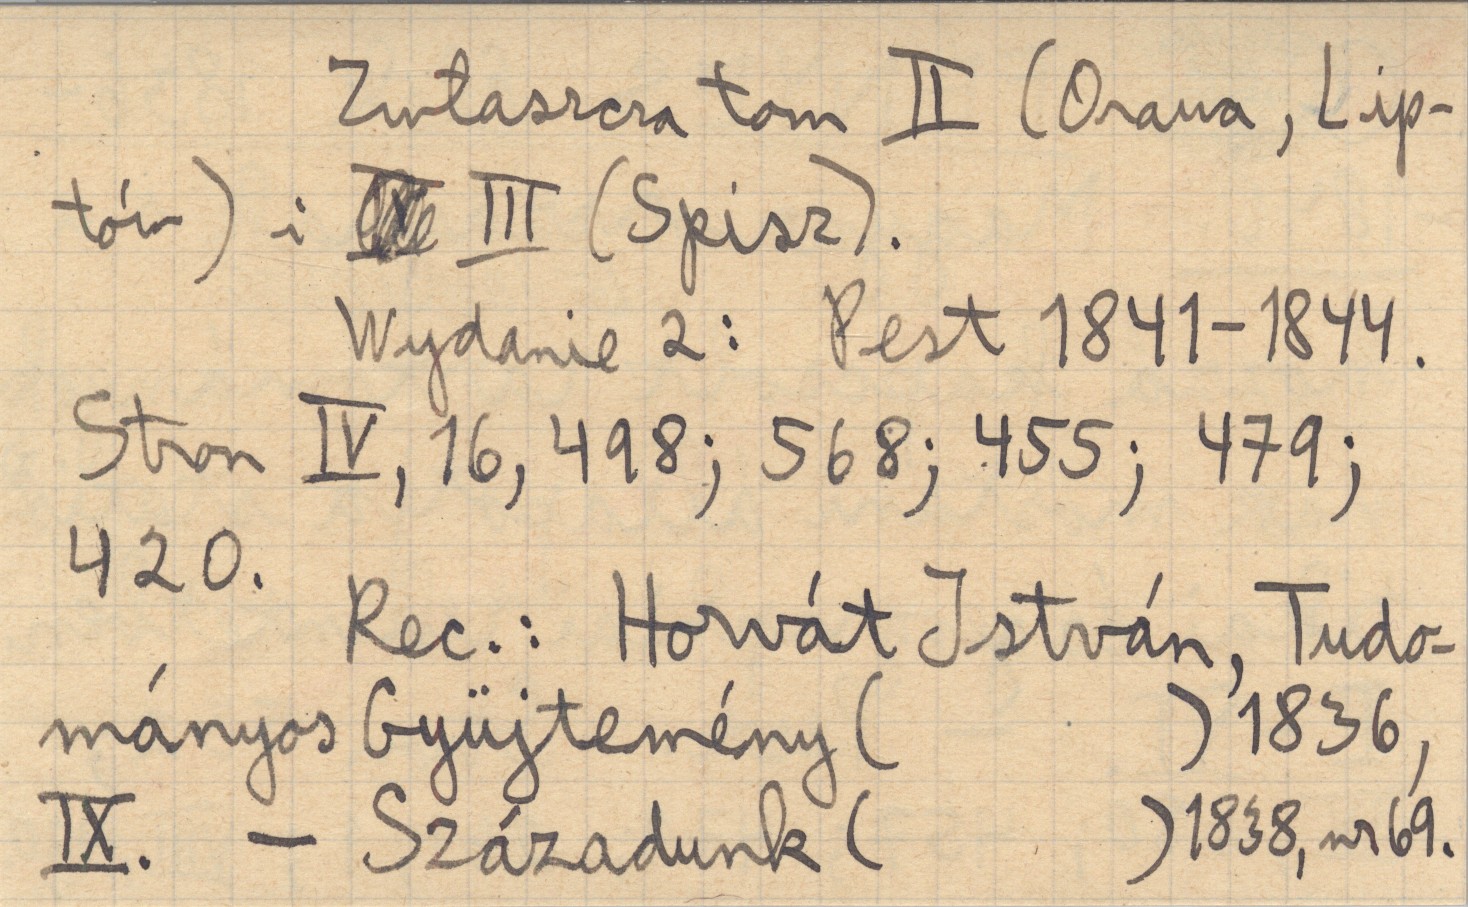 Zwłaszcza tom II (Orawa, Lip-
tów) i III (Spisz).
Wydanie 2: Pest 1841-1844.
Stron IV, 16, 498; 568; 455; 479;
420.
Rec.: Horvát István, Tudo-
mányos Gyüjtemény ( ) 1836,
IX. — Századunk ( ) 1838, nr 69.